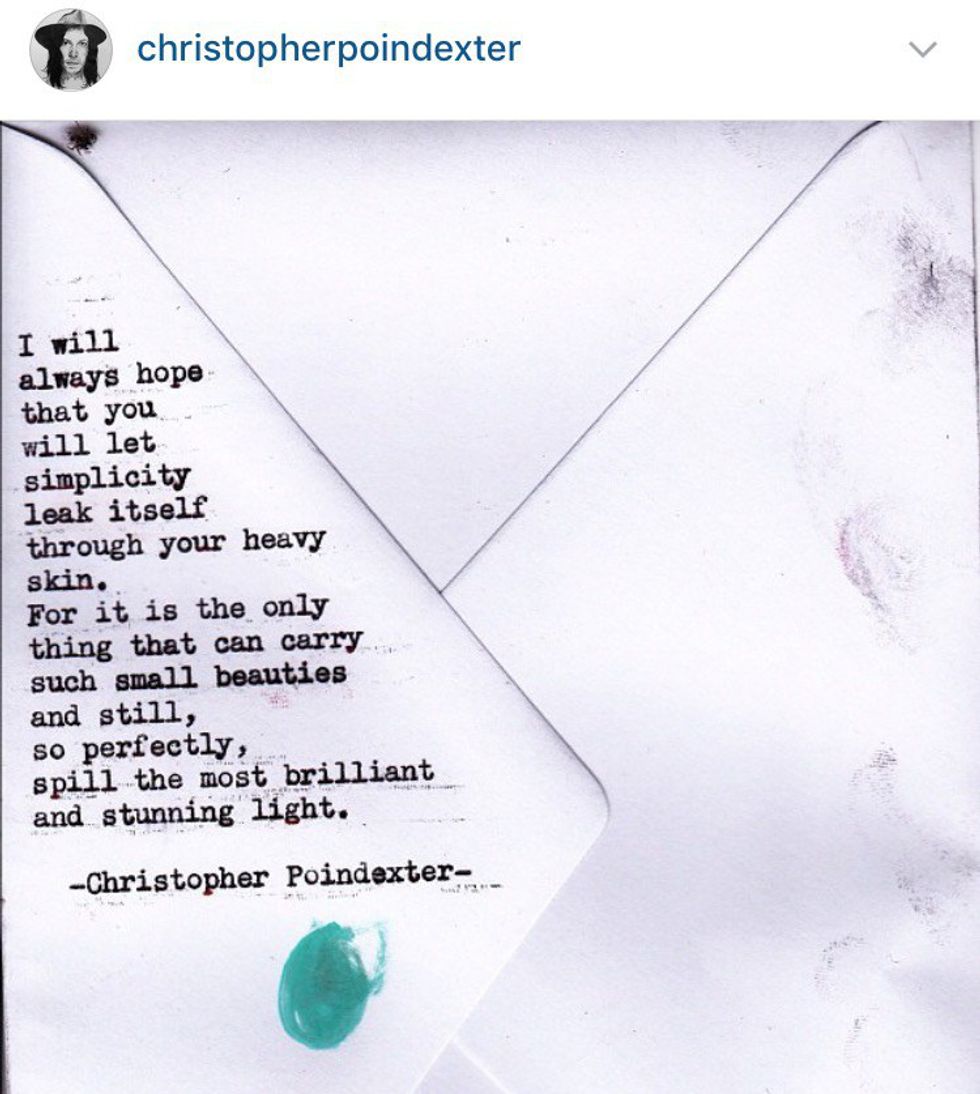 christopherpoindexter
I will
always hope
that you
will let
simplicity
leak itself
through your heavy
skin.
For it is the only
thing that can carry
such small beauties
and still,
so perfectly,
spill the most brilliant
and stunning light.
-Christopher Poindexter-